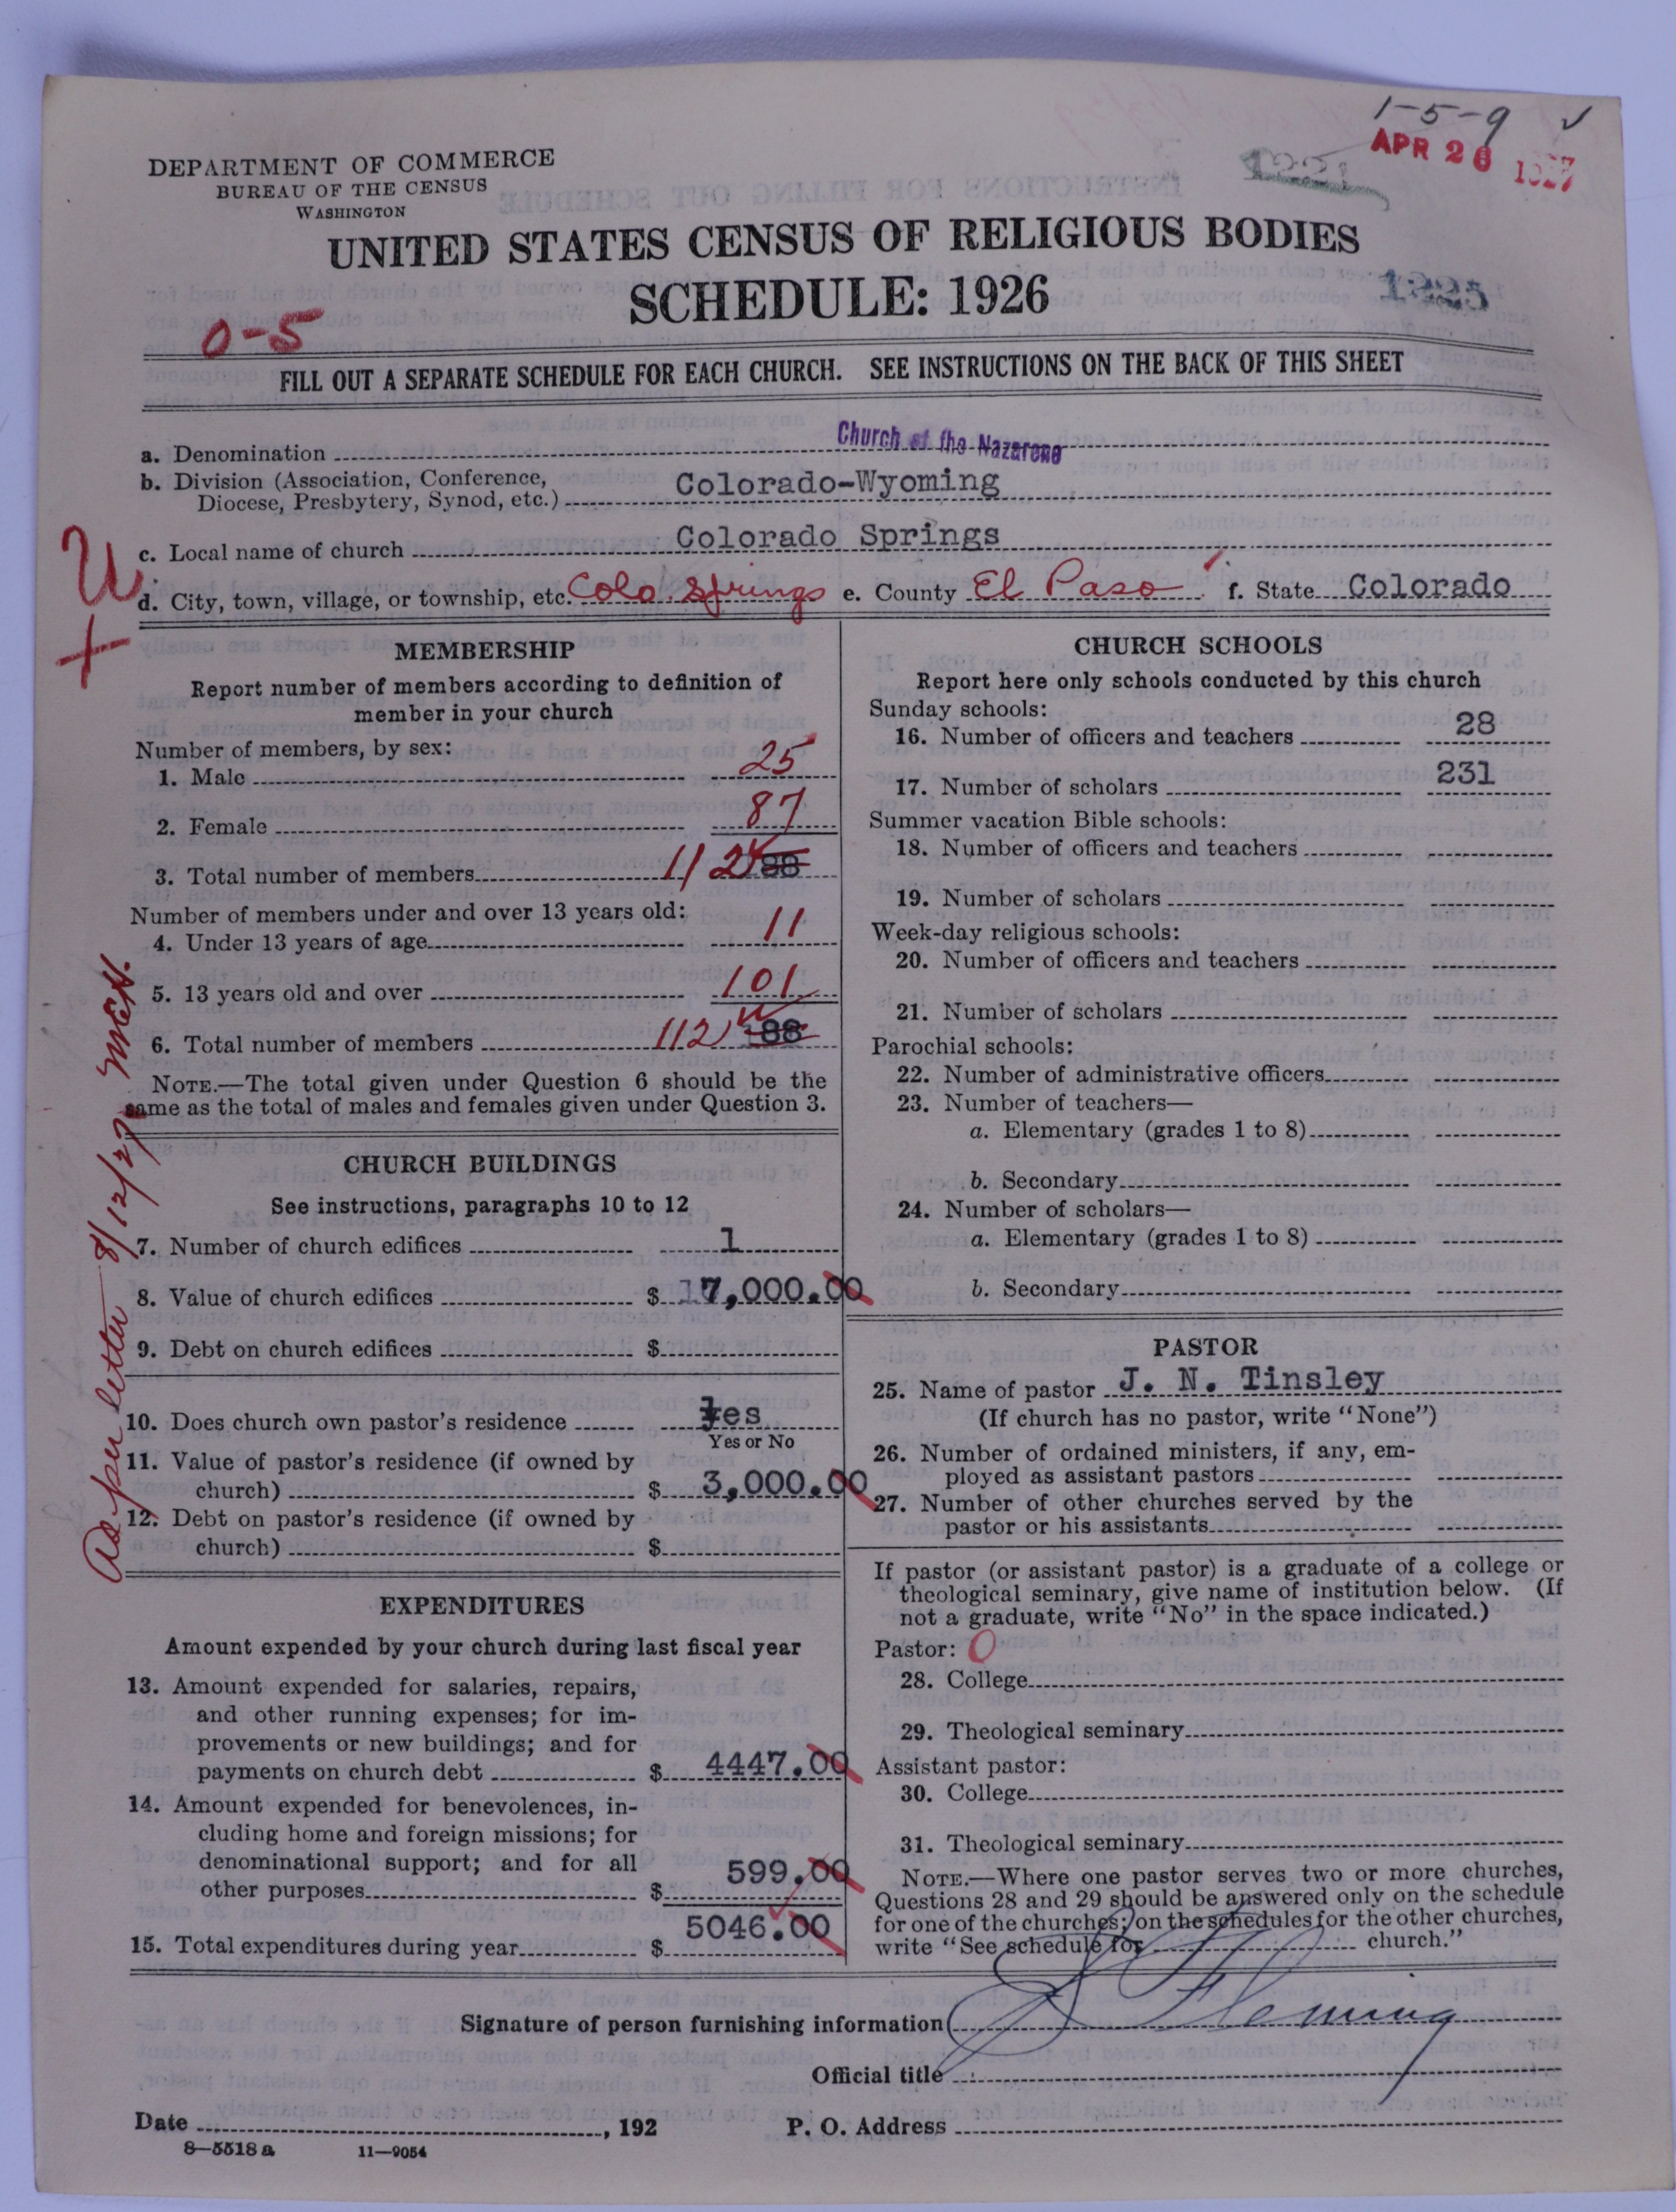 1-5-9 ✓
APR 26 1927
DEPARTMENT OF COMMERCE
BUREAU OF THE CENSUS
WASHINGTON
UNITED STATES CENSUS OF RELIGIOUS BODIES
SCHEDULE: 1926
0-5
FILL OUT A SEPARATE SCHEDULE FOR EACH CHURCH. SEE INSTRUCTIONS ON THE BACK OF THIS SHEET
a. Denomination Church of the Nazarene
b. Division (Association, Conference,
Diocese, Presbytery, Synod, etc.) Colorado-Wyoming
c. Local name of church Colorado Springs
U
d. City, town, village, or township, etc. Colo. Springs e. County El Paso f. State Colorado
+
MEMBERSHIP
Report number of members according to definition of
member in your church
Number of members, by sex:
1. Male 25
2. Female 87
3. Total number of members 112 88
Number of members under and over 13 years old:
4. Under 13 years of age 11
5. 13 years old and over 101
6. Total number of members 112 88
NOTE.—The total given under Question 6 should be the
same as the total of males and females given under Question 3.
CHURCH BUILDINGS
See instructions, paragraphs 10 to 12
7. Number of church edifices 1
8. Value of church edifices $ 17,000.00
9. Debt on church edifices $
10. Does church own pastor's residence Yes
Yes or No
11. Value of pastor's residence (if owned by
church) $ 3,000.00
12. Debt on pastor's residence (if owned by
church) $
As per letter 8/12/27
EXPENDITURES
Amount expended by your church during last fiscal year
13. Amount expended for salaries, repairs,
and other running expenses; for im-
provements or new buildings; and for
payments on church debt $ 4447.00
14. Amount expended for benevolences, in-
cluding home and foreign missions; for
denominational support; and for all
other purposes $ 599.00
15. Total expenditures during year $ 5046.00
CHURCH SCHOOLS
Report here only schools conducted by this church
Sunday schools:
16. Number of officers and teachers 28
17. Number of scholars 231
Summer vacation Bible schools:
18. Number of officers and teachers
19. Number of scholars
Week-day religious schools:
20. Number of officers and teachers
21. Number of scholars
Parochial schools:
22. Number of administrative officers
23. Number of teachers—
a. Elementary (grades 1 to 8)
b. Secondary
24. Number of scholars—
a. Elementary (grades 1 to 8)
b. Secondary
PASTOR
25. Name of pastor J. N. Tinsley
(If church has no pastor, write "None")
26. Number of ordained ministers, if any, em-
ployed as assistant pastors
27. Number of other churches served by the
pastor or his assistants
If pastor (or assistant pastor) is a graduate of a college or
theological seminary, give name of institution below. (If
not a graduate, write "No" in the space indicated.)
Pastor: 0
28. College
29. Theological seminary
Assistant pastor:
30. College
31. Theological seminary
NOTE.—Where one pastor serves two or more churches,
Questions 28 and 29 should be answered only on the schedule
for one of the churches; on the schedules for the other churches,
write "See schedule for church."
Signature of person furnishing information Fleming
Official title
Date , 192 P. O. Address
8—5518 a 11—9054